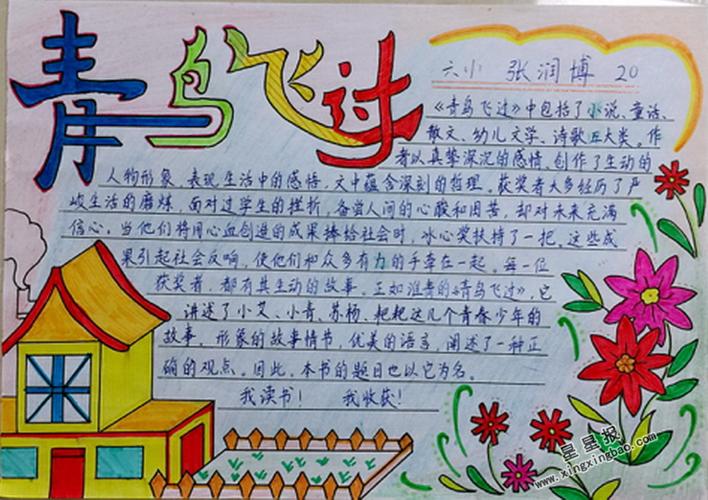 青鸟飞过
六小 张润博 20
《青鸟飞过》中包括了小说、童话、
散文、幼儿文学、诗歌五大类。作
者以真挚深沉的感情、创作了生动的
人物形象,表现生活中的感悟,文中蕴含深刻的哲理。获奖者大多经历了严
峻生活的磨炼,面对过学生的挫折,备尝人间的心酸和困苦,却对未来充满
信心。当他们将用心血创造的成果捧给社会时,冰心奖扶持了一把。这些成
果引起社会反响,使他们和众多有力的手牵在一起。每一位
获奖者,都有其生动的故事。正如淮青的《青鸟飞过》,它
讲述了小艾、小青、苏杨、耙耙这几个青春少年的
故事。形象的故事情节,优美的语言,阐述了一种正
确的观点。因此,本书的题目也以它为名。
我读书! 我收获!
星星报
www.xingxingbao.com